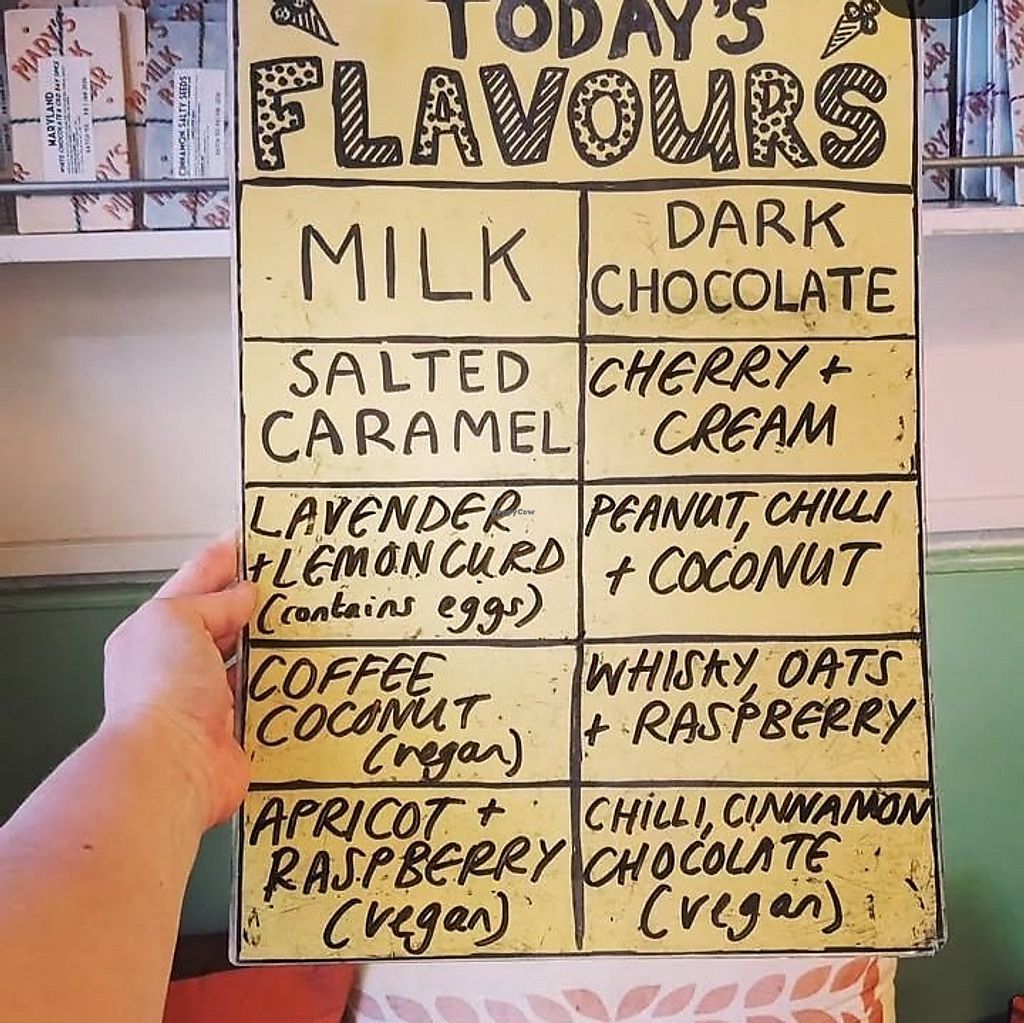 TODAY'S
FLAVOURS
MILK
DARK
CHOCOLATE
SALTED
CARAMEL
CHERRY +
CREAM
LAVENDER
+ LEMON CURD
(contains eggs)
PEANUT, CHILLI
+ COCONUT
COFFEE
COCONUT
(vegan)
WHISKY, OATS
+ RASPBERRY
APRICOT +
RASPBERRY
(vegan)
CHILLI, CINNAMON
CHOCOLATE
(vegan)
MARY'S
MILK
BAR
MARYLAND
CINNAMON SALTY SEEDS
HappyCow